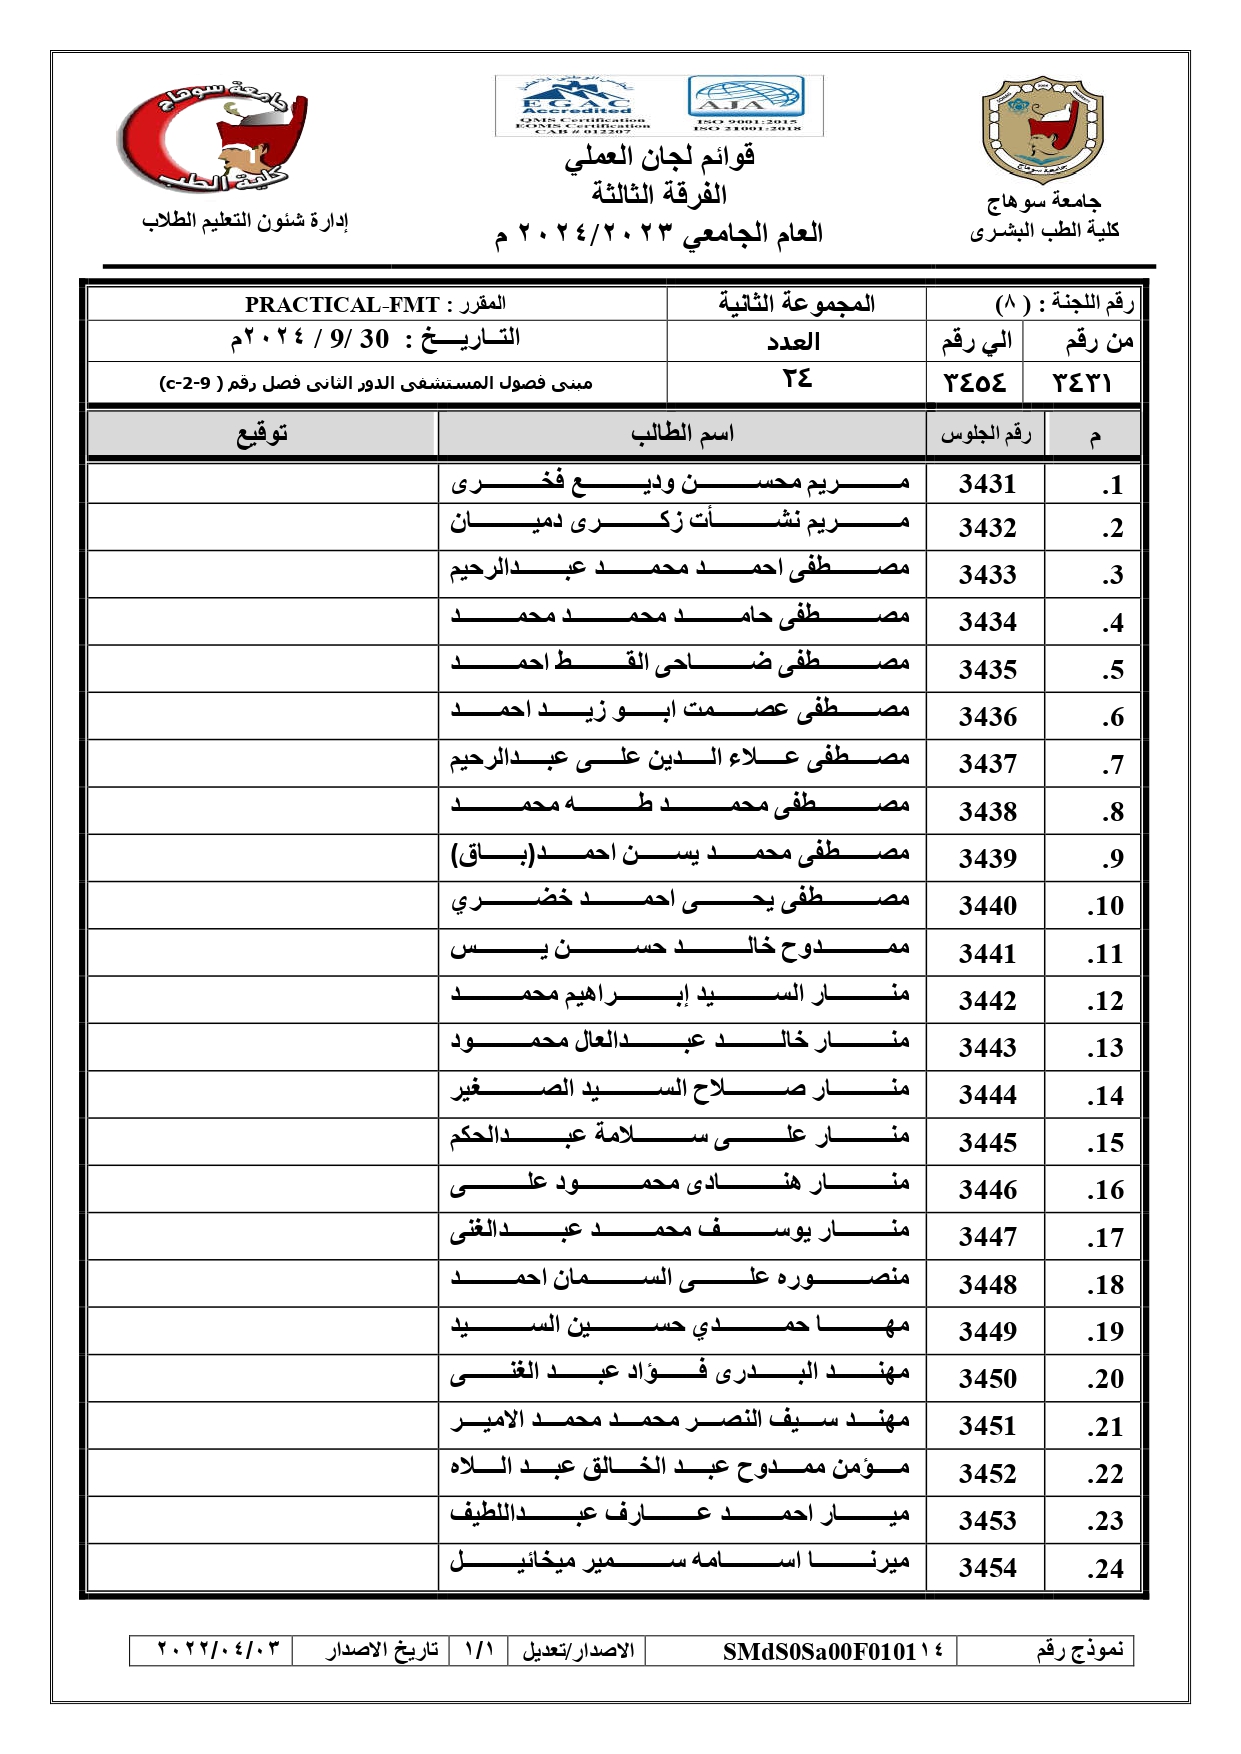 جامعة سوهاج
كلية الطب البشرى
EGAC
Accredited
QMS Certification
EOMS Certification
CAB # 012207
AJA
ISO 9001:2015
ISO 21001:2018
قوائم لجان العملي
الفرقة الثالثة
العام الجامعي ٢٠٢٤/٢٠٢٣ م
جامعة سوهاج
كلية الطب
إدارة شئون التعليم الطلاب
رقم اللجنة : ( ٨) المجموعة الثانية المقرر : PRACTICAL-FMT
من رقم الي رقم العدد التاريخ : 30 /9 / ٢٠٢٤م
٣٤٣١ ٣٤٥٤ ٢٤ مبنى فصول المستشفى الدور الثانى فصل رقم ( c-2-9)
م رقم الجلوس اسم الطالب توقيع
1. 3431 مريم محسن وديع فخرى
2. 3432 مريم نشأت زكرى دميان
3. 3433 مصطفى احمد محمد عبدالرحيم
4. 3434 مصطفى حامد محمد محمد
5. 3435 مصطفى ضاحى القط احمد
6. 3436 مصطفى عصمت ابو زيد احمد
7. 3437 مصطفى علاء الدين على عبدالرحيم
8. 3438 مصطفى محمد طه محمد
9. 3439 مصطفى محمد يسن احمد(باق)
10. 3440 مصطفى يحى احمد خضري
11. 3441 ممدوح خالد حسن يس
12. 3442 منار السيد إبراهيم محمد
13. 3443 منار خالد عبدالعال محمود
14. 3444 منار صلاح السيد الصغير
15. 3445 منار على سلامة عبدالحكم
16. 3446 منار هنادى محمود على
17. 3447 منار يوسف محمد عبدالغنى
18. 3448 منصوره على السمان احمد
19. 3449 مها حمدي حسين السيد
20. 3450 مهند البدرى فؤاد عبد الغنى
21. 3451 مهند سيف النصر محمد محمد الامير
22. 3452 مؤمن ممدوح عبد الخالق عبد اللاه
23. 3453 ميار احمد عارف عبداللطيف
24. 3454 ميرنا اسامه سمير ميخائيل
نموذج رقم SMdS0Sa00F0101١٤ الاصدار/تعديل ١/١ تاريخ الاصدار ٢٠٢٢/٠٤/٠٣